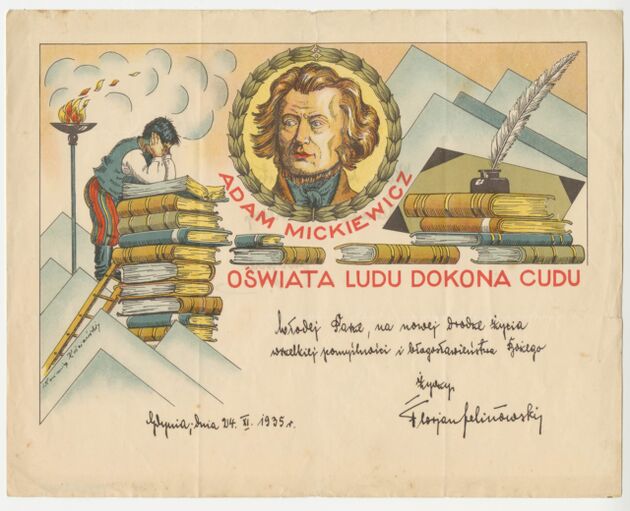 ADAM MICKIEWICZ
OŚWIATA LUDU DOKONA CUDU
Młodej Parze, na nowej drodze życia
wszelkiej pomyślności i błogosławieństwa Bożego
życzy
Florjan
Gdynia, dnia 24. XI. 1935 r.